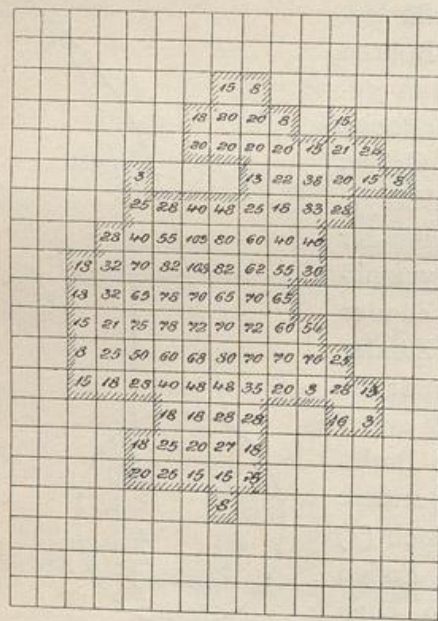 15 8
18 20 20 8 15
20 20 20 20 15 21 26
3 13 22 38 20 15 8
25 28 40 48 25 18 33 28
28 40 55 109 80 60 40 40
18 32 70 82 108 82 62 55 30
18 32 65 78 70 65 70 65
15 21 75 78 72 70 72 60 50
8 25 50 60 68 80 70 70 70 25
15 18 28 40 48 48 35 20 3 28 13
18 18 28 28 16 3
18 25 20 27 18
20 26 15 15
8